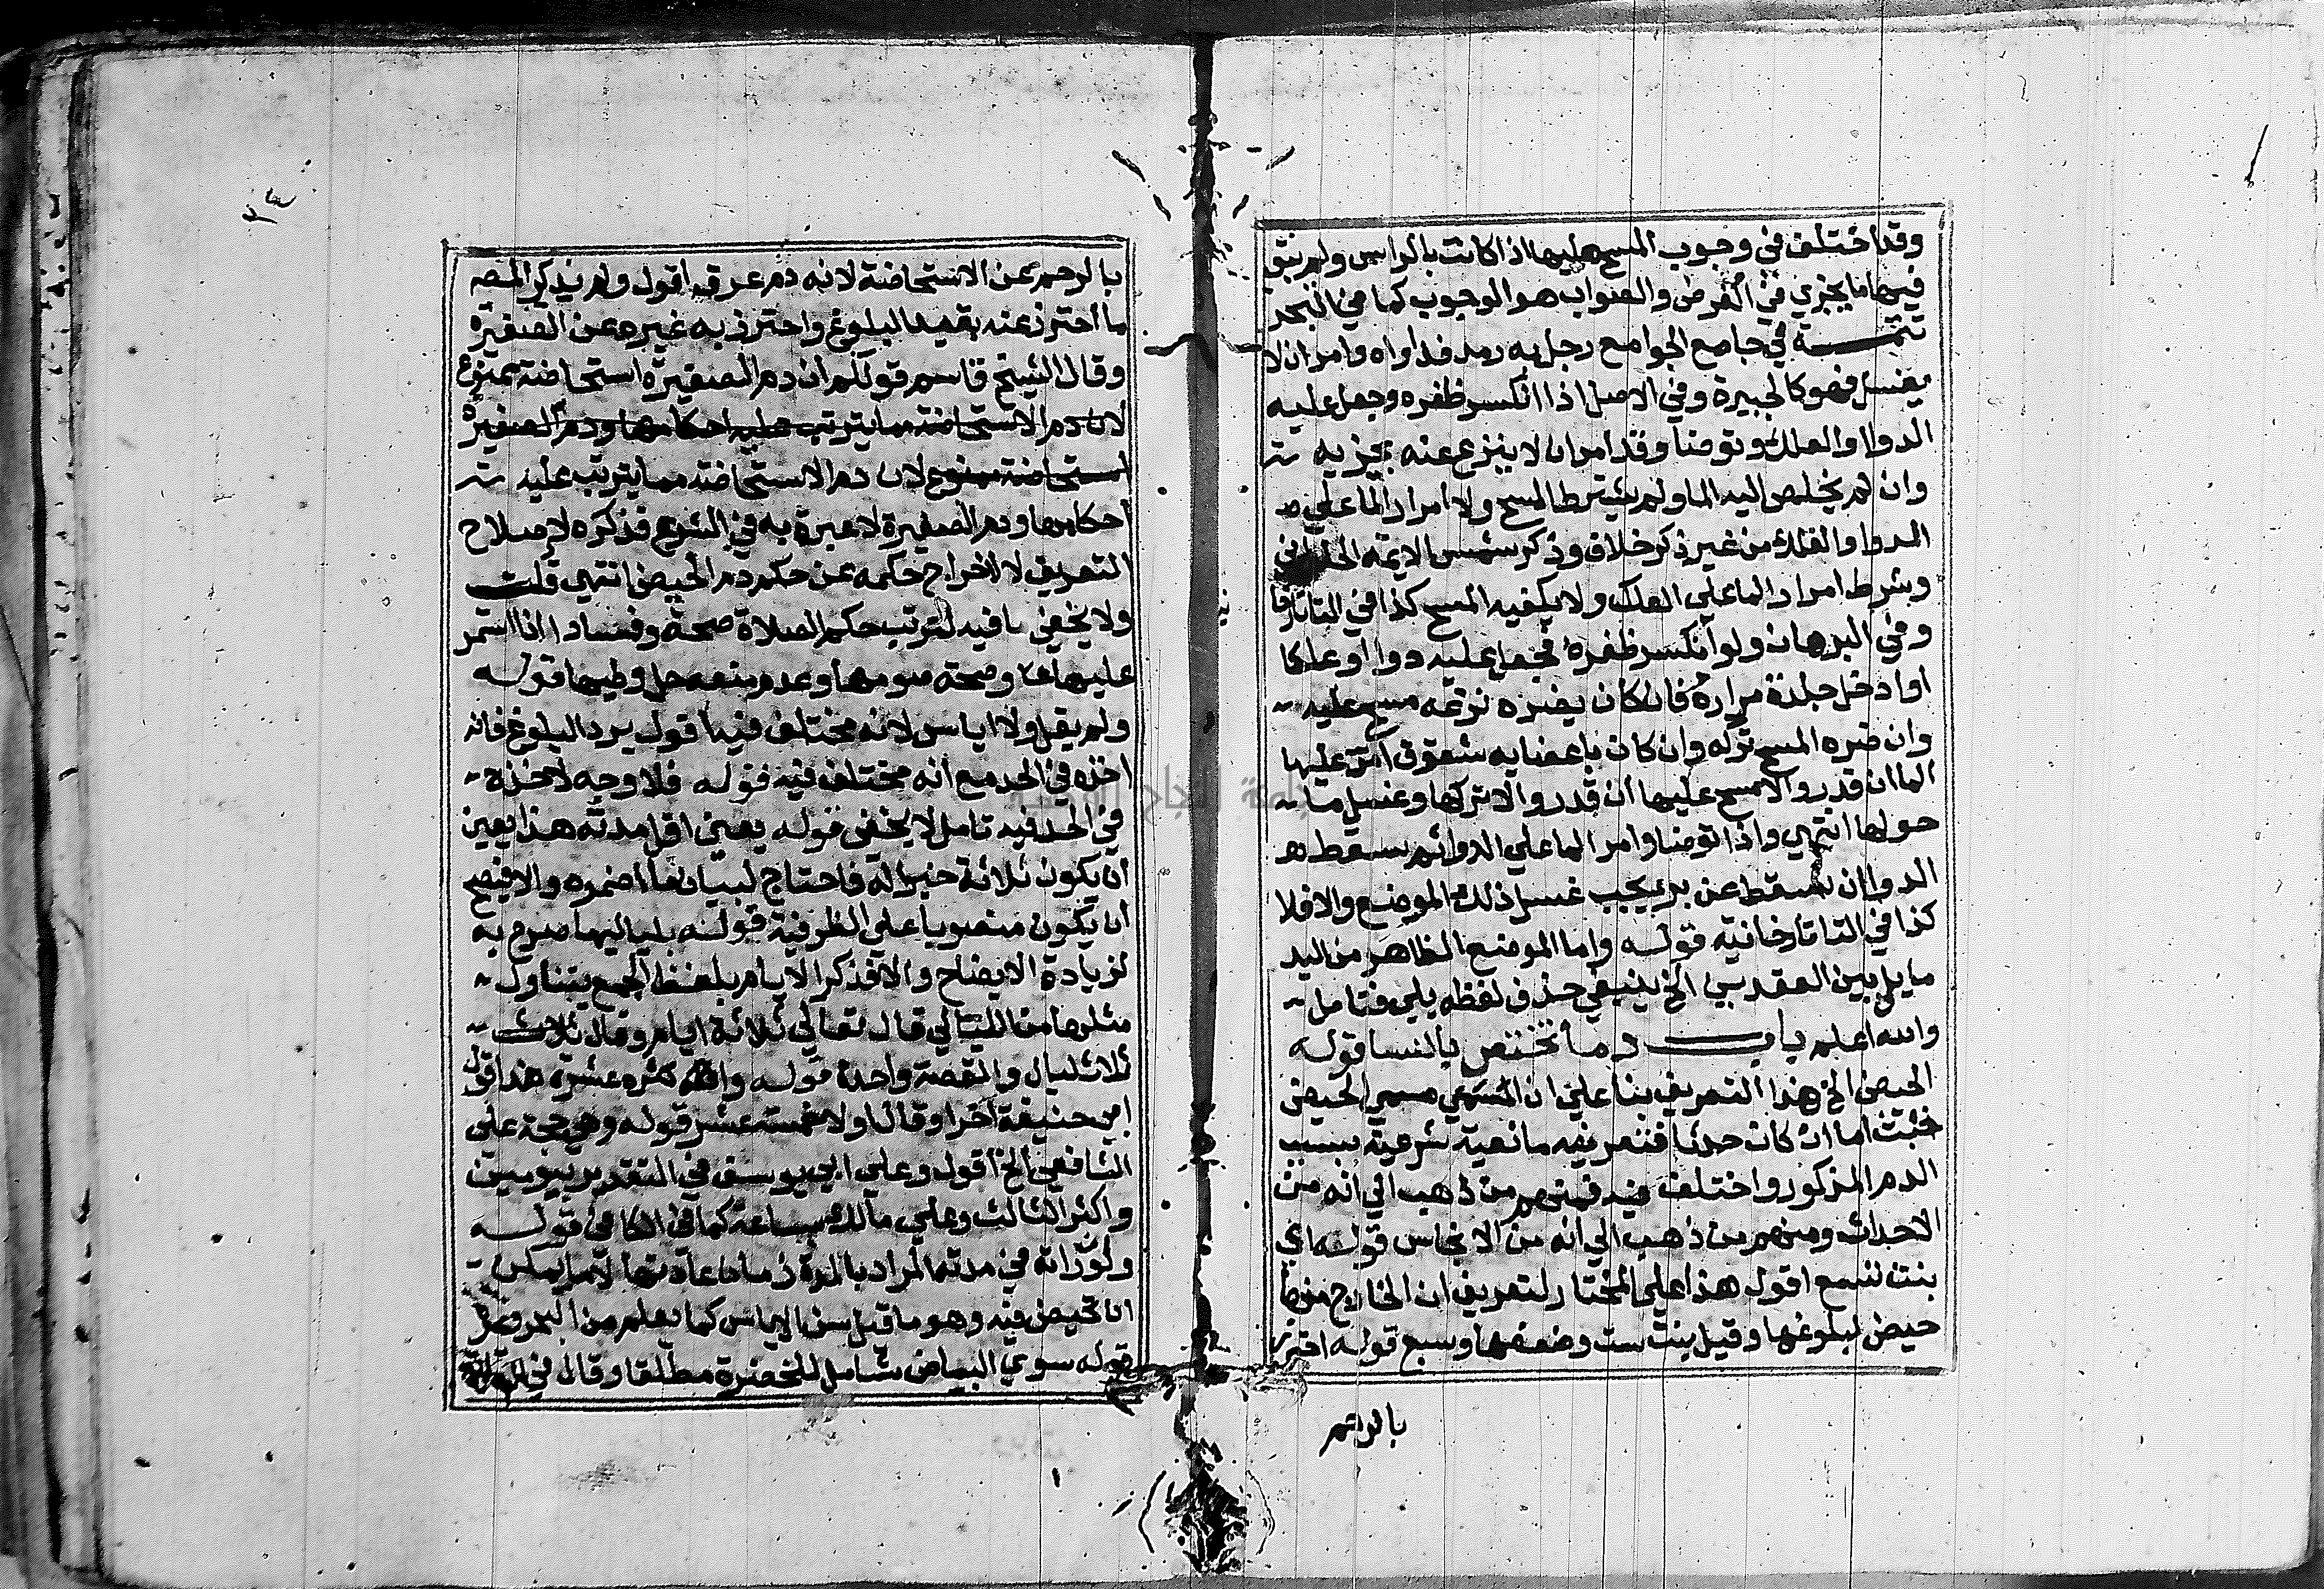 وقد اختلف في وجوب المسح عليها اذا كانت بالراس ولم يبق
فيها ما يجزي في الفرض والصواب هو الوجوب كما في البحر
تتمـة في جامع الجوامع رجل به رمد فداواه وامر ان لا
يغسل فهو كالجبيرة وفي الاصل اذا انكسر ظفره وجعل عليه
الدوا والعلك وتوضا وقد امر ان لا ينزع عنه يجزيه
وان لم يخلص اليه الما ولم يشترط المسح ولا امرار الما علي
الدوا والعلك من غير ذكر خلاف وذكر شمس الايمة الحلواني
وبشرط امرار الما علي العلك ولا يكفيه المسح كذا في التاتارخا
نية
وفي البرهان ولو انكسر ظفره فجعل عليه دوا او علكا
او ادخل جلدة مرارة فان كان يضره نزعه مسح عليه
وان ضره المسح تركه وان كان باعضايه شقوق امر عليها
الما ان قدر والا مسح عليها ان قدر والا تركها وغسل ما
حولها انتهي واذا توضا وامر الما علي الدوا ثم سقط
الدوا ان سقط عن بر يجب غسل ذلك الموضع والا فلا
كذا في التاتارخانية قولـه واما الموضع الظاهر من اليد
ما يلي بين العقدبين الخ ينبغي حذف لفظه يلي فتامل
والله اعلم بابـــ دما تختص بالنسا قولـه
الحيض الخ هذا التعريف بنا علي ان المسمي مسمي الحيض
خبث اما ان كان حدثا فتعريفه مانعية شرعية بسبب
الدم المذكور واختلف فيه فمنهم من ذهب الي انه من
الاحداث ومنهم من ذهب الي انه من الانجاس قولـه اي
بنت تسع اقول هذا علي المختار لتعريف ان الخارج منها
حيض لبلوغها وقيل بنت ست وضعفها وسبع قوله احترز
بالرحم
٢٤
بالرحم عن الاستحاضة لانه دم عرق اقول ولم يذكر المصـ
ما احترز عنه بقيد البلوغ واحترز به غيره عن الصغيرة
وقال الشيخ قاسم قولكم ان دم الصغيرة استحاضة ممنوع
لان دم الاستحاضة مما يترتب عليه احكامها ودم الصغيرة
استحاضة ممنوع لان دم الاستحاضة مما يترتب عليه
احكامها ودم الصغيرة لا عبرة به في الشرع فذكره لاصلاح
التعريف لا لاخراج حكمه عن حكم دم الحيض انتهي قلت
ولا يخفي ما فيه لترتب حكم الصلاة صحة وفسادا اذا استمر
عليها وصحة صومها وعدم منعه حل وطيها قولـه
ولم يقل ولا اياس لانه مختلف فيه اقول يرد البلوغ فانه
اخذه في الحد مع انه مختلف فيه قولـه فلا وجه لاخذه
في الحد فيه تامل لا يخفي قوله يعني اقل مدته هذا يعين
ان يكون ثلاثة خبرا له فاحتاج لبيان ما اضمره والا فيصح
ان يكون منصوبا علي الظرفية قولـه بلياليها صرح به
لزيادة الايضاح والا فذكر الايام بلفظ الجمع يتناول
مثلها من الليالي قال تعالي ثلاثة ايام وقال ثلاث
ثلاث ليال والقصة واحدة قولـه واكثره عشرة هذا قول
ابي حنيفة اخرا وقال اولا خمسة عشر قوله وهو حجة علي
الشافعي الخ اقول وعلي ابي يوسف في التقدير بيومين
واكثر الثالث وعلي مالك بساعة كما في الكافي قولـه
ولو راته في مدته المراد بالمدة زمان عادتها لا ما يمكن
ان تحيض فيه وهو ما قبل سن الاياس كما يعلم من البحر وغيره
قوله سوي البياض شامل للخضرة مطلقا وقال في